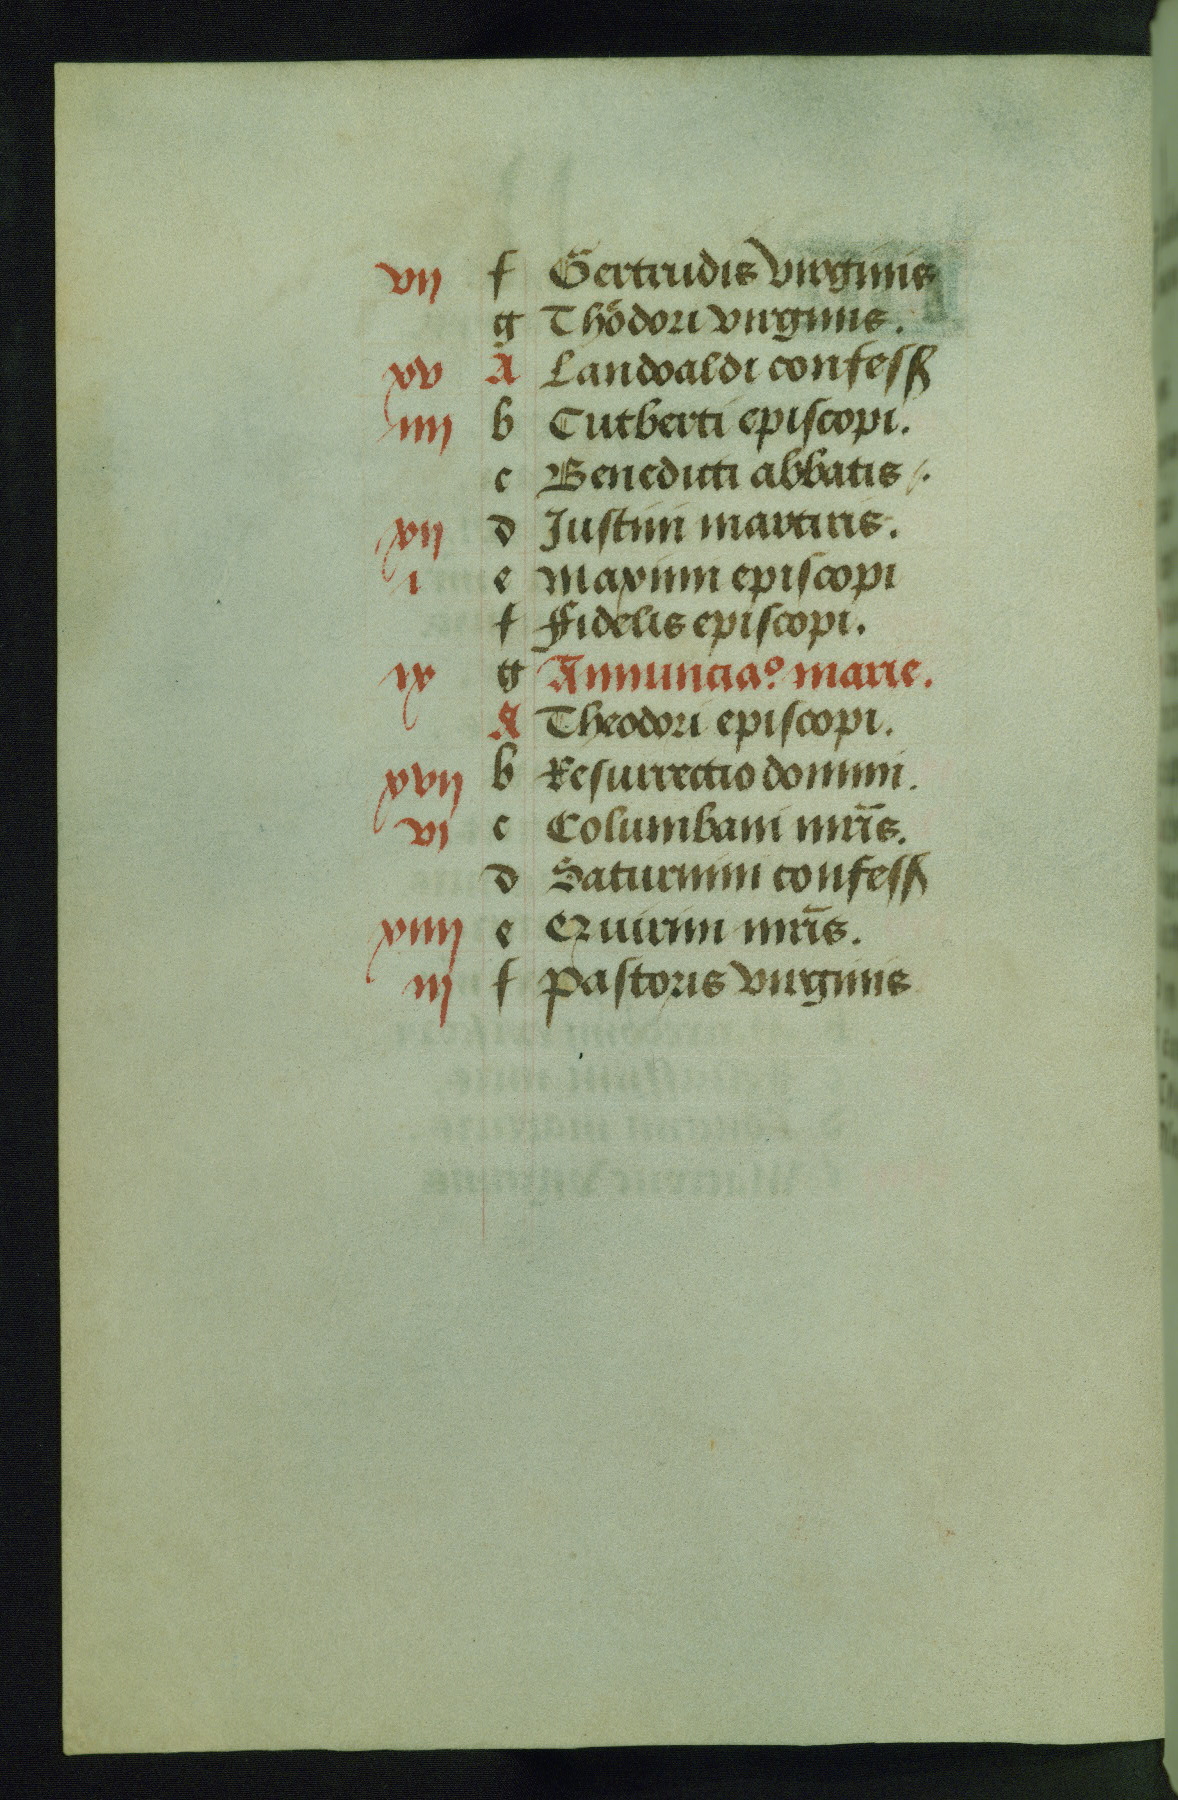 vij f Gertrudis virginis
g Thodori virginis.
xv A Landoaldi confess
iiij b Cutberti episcopi.
c Benedicti abbatis.
xij d Justini martiris.
i e Maximi episcopi
f Fidelis episcopi.
ix g Annunciaº marie.
A Theodori episcopi.
xvij b Resurrectio domini.
vi c Columbani mr̄is.
d Saturnini confess
xiiij e Quirini mr̄is.
iij f Pastoris virginis